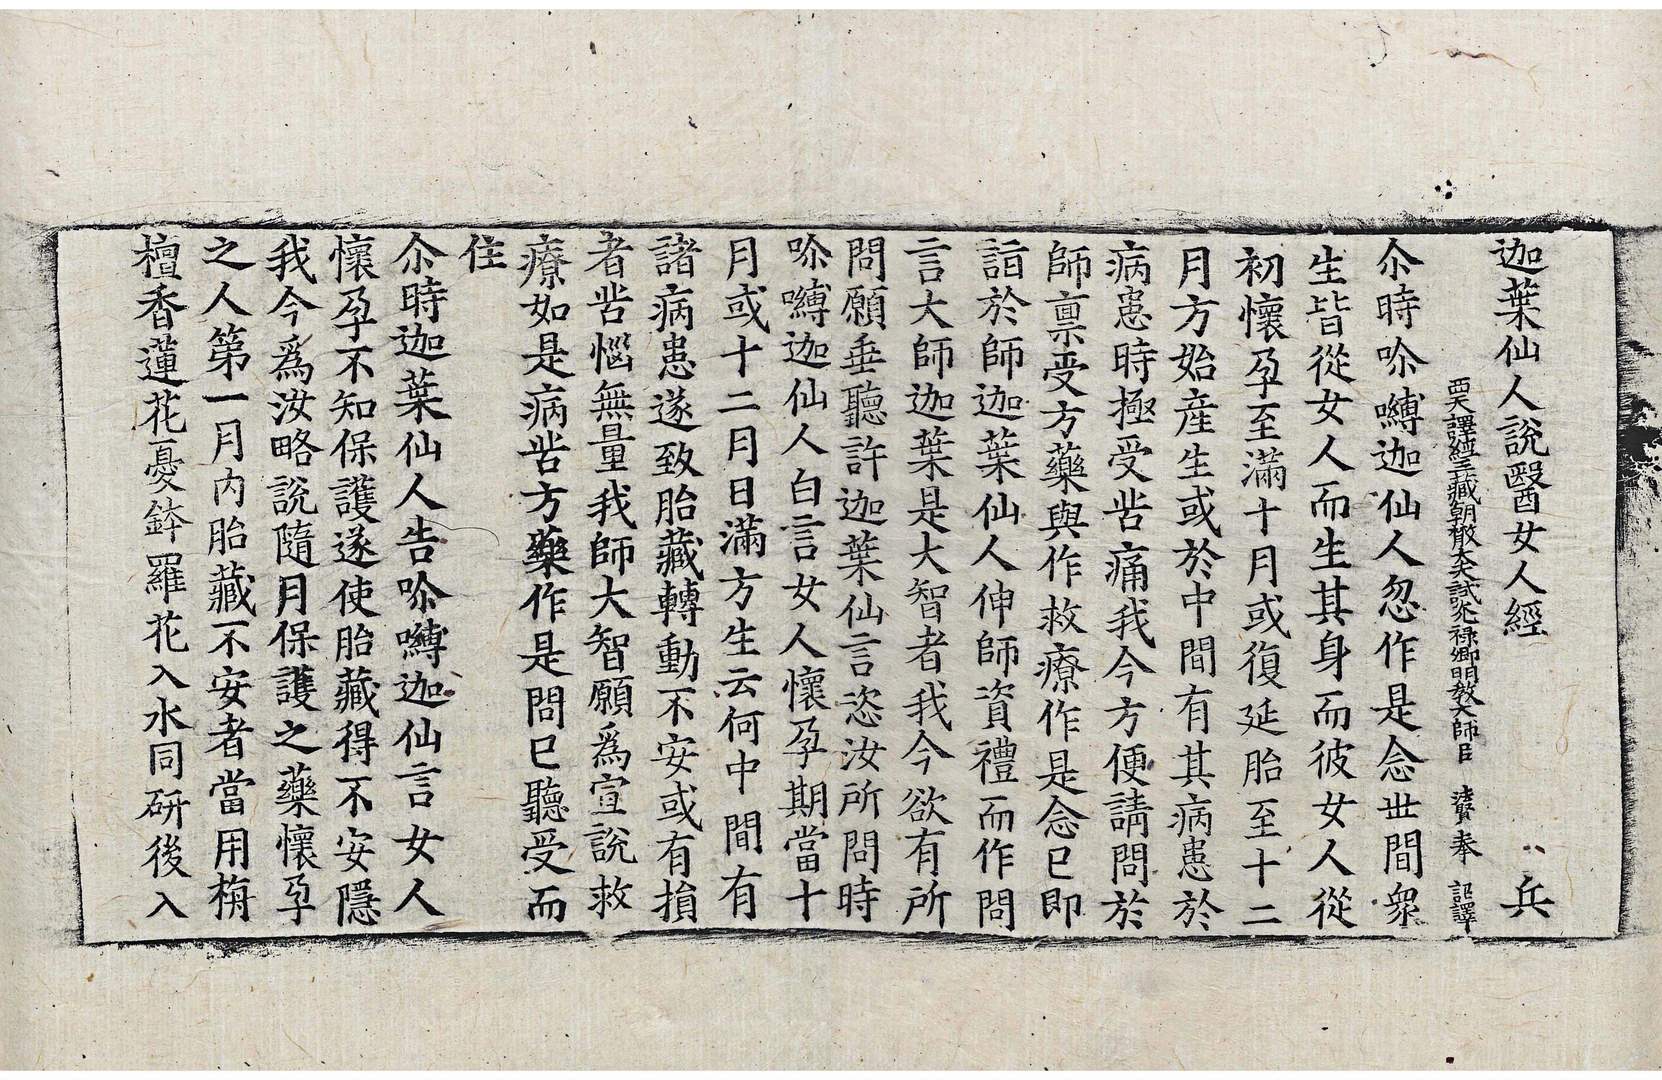 迦葉仙人說醫女人經　兵
西天譯經三藏朝散大夫試光祿卿明教大師臣　法賢奉　詔譯
尒時哳嚩迦仙人忽作是念世間衆
生皆從女人而生其身而彼女人從
初懷孕至滿十月或復延胎至十二
月方始産生或於中間有其病患於
病患時極受苦痛我今方便請問於
師禀受方藥與作救療作是念已即
詣於師迦葉仙人伸師資禮而作問
言大師迦葉是大智者我今欲有所
問願垂聽許迦葉仙言恣汝所問時
哳嚩迦仙人白言女人懷孕期當十
月或十二月日滿方生云何中間有
諸病患遂致胎藏轉動不安或有損
者苦惱無量我師大智願爲宣說救
療如是病苦方藥作是問已聽受而
住
尒時迦葉仙人告哳嚩迦仙言女人
懷孕不知保護遂使胎藏得不安隱
我今爲汝略說隨月保護之藥懷孕
之人第一月内胎藏不安者當用栴
檀香蓮花憂鉢羅花入水同研後入